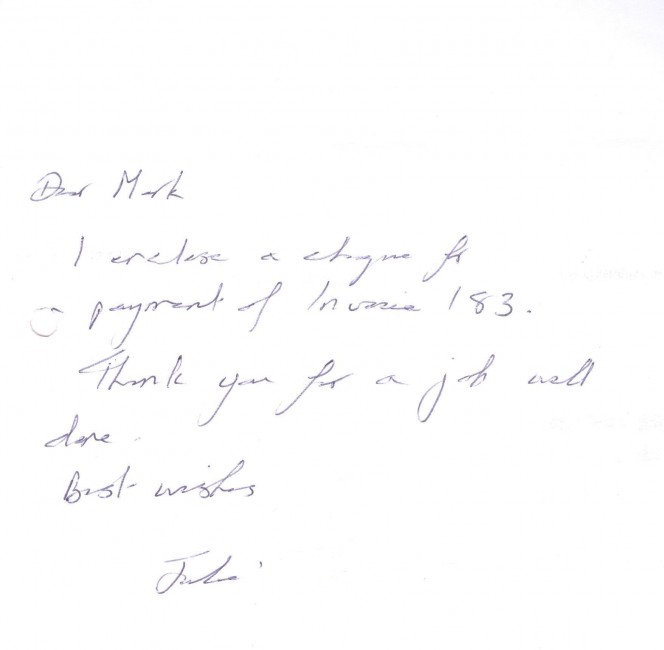 Dear Mark
I enclose a cheque for
a payment of Invoice 183.
Thank you for a job well
done.
Best wishes